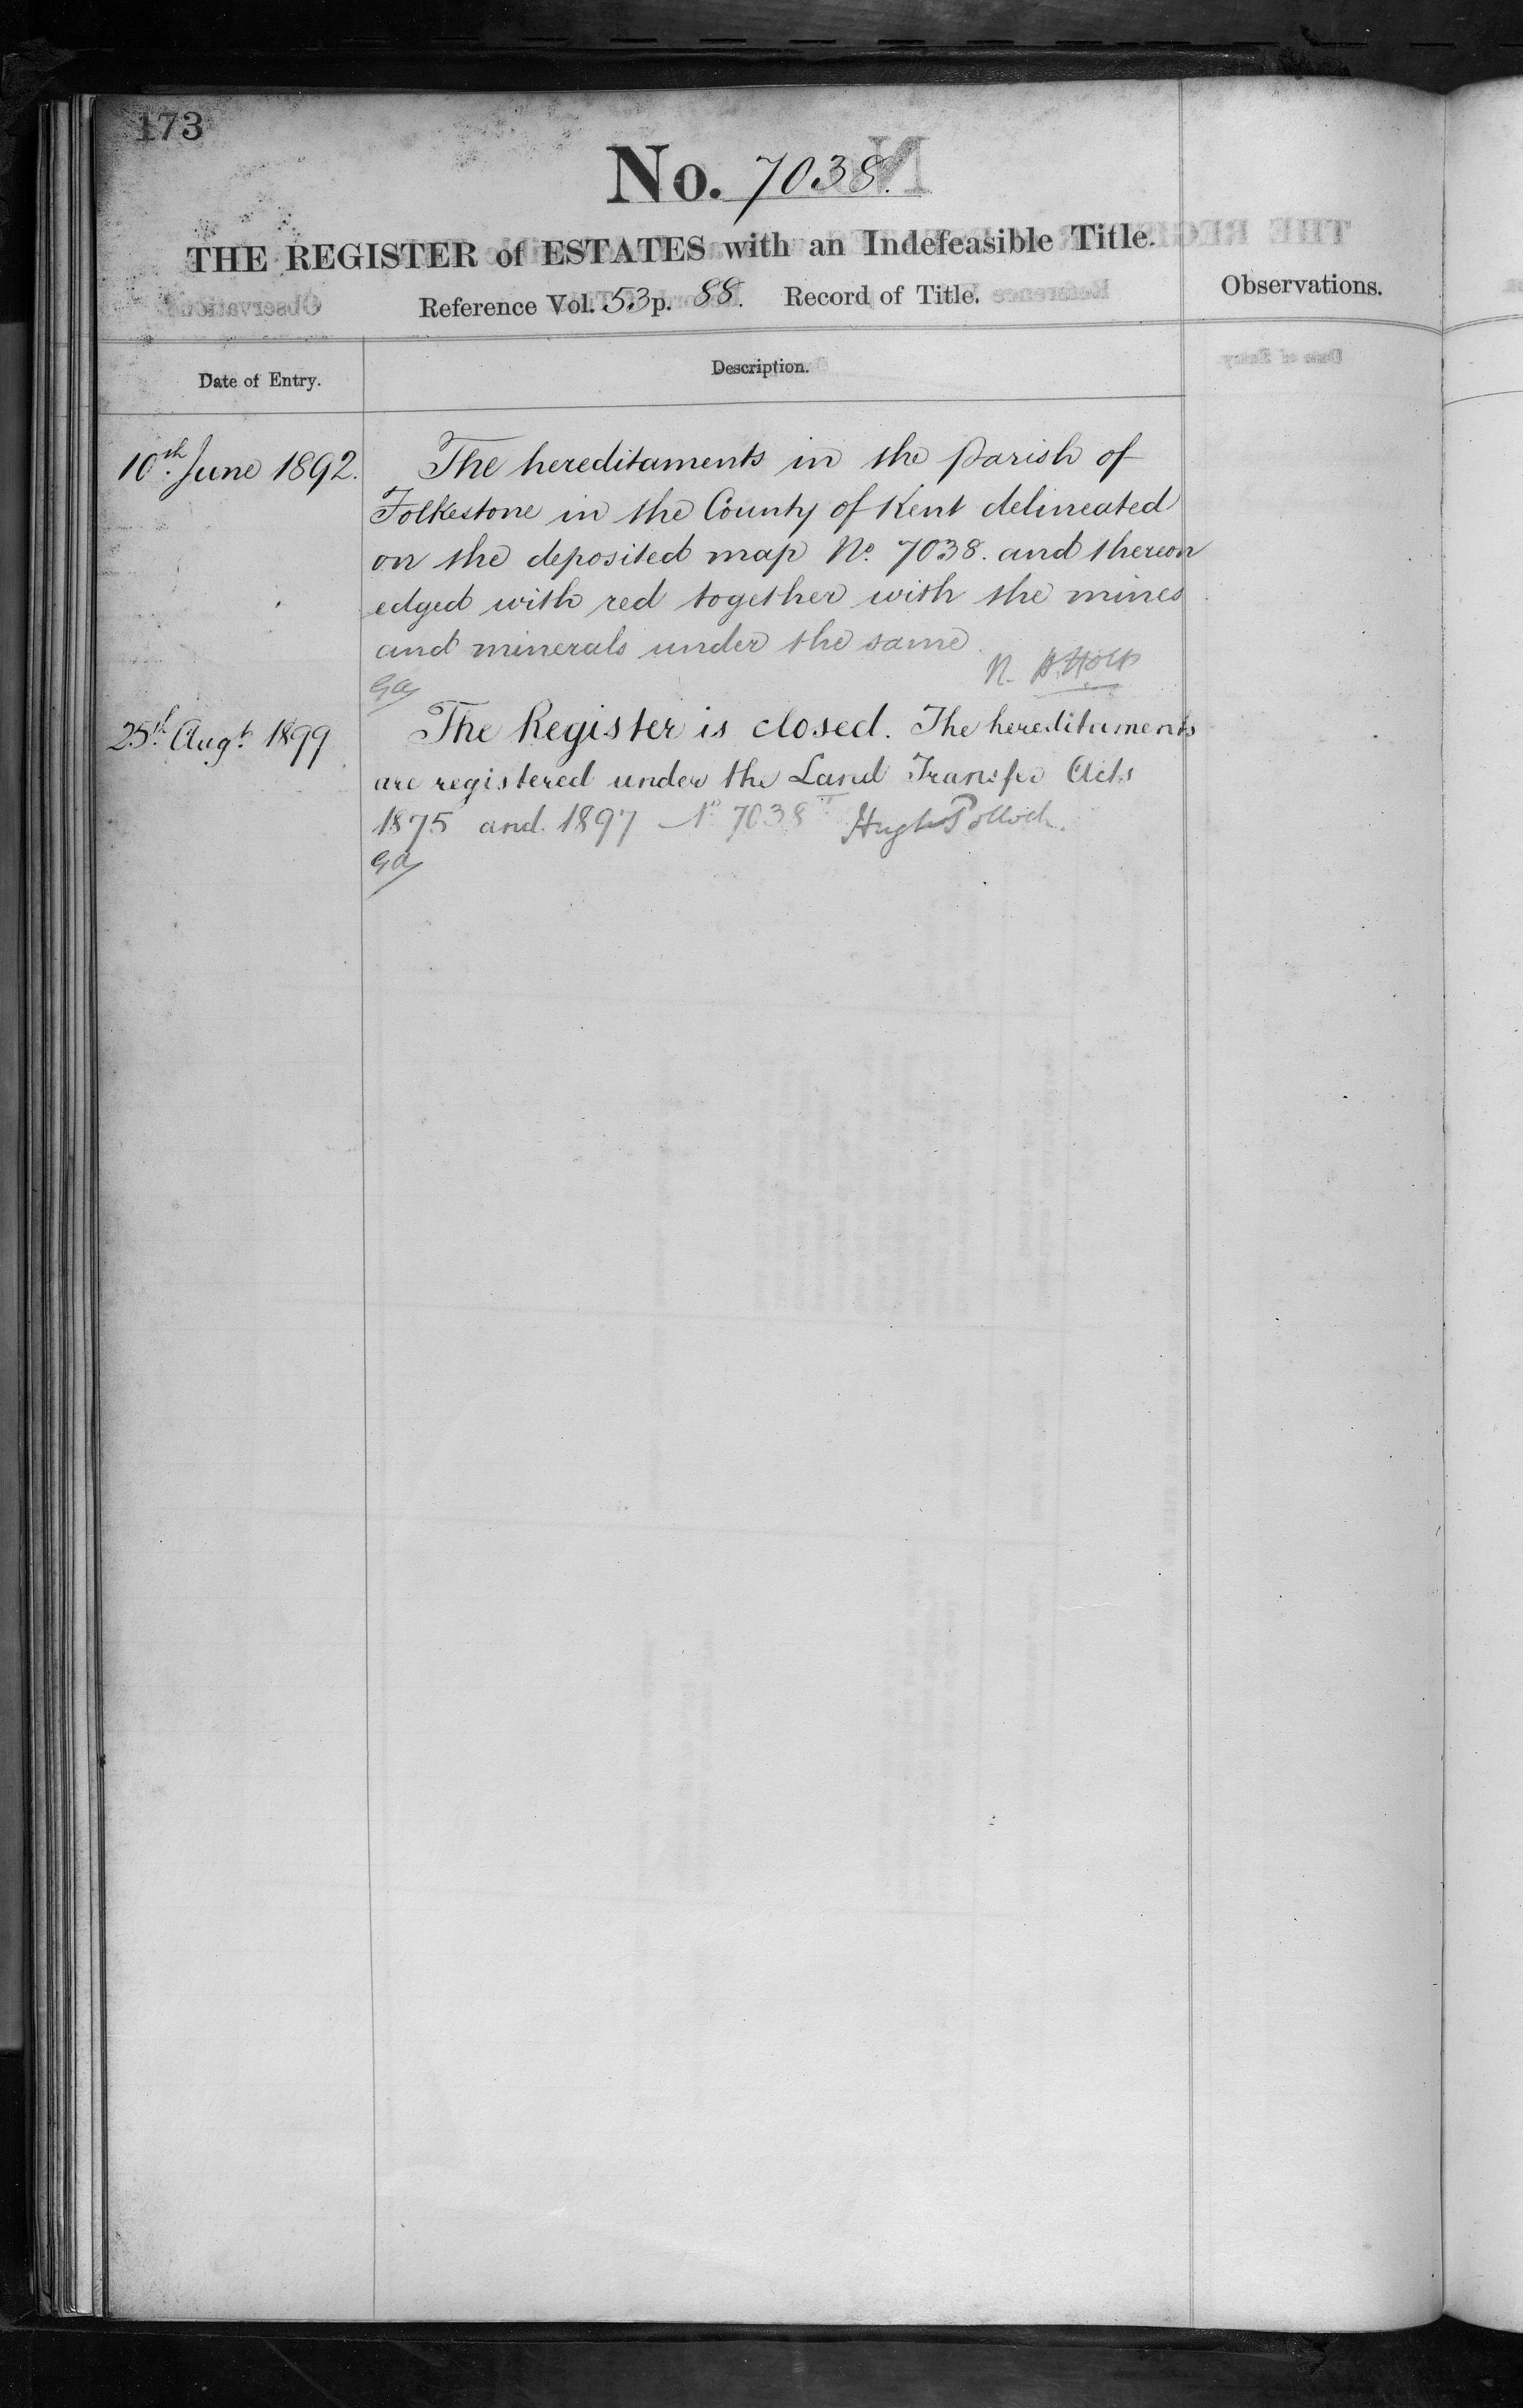 173
No. 7038.
THE REGISTER of ESTATES with an Indefeasible Title.
Reference Vol. 53 p. 88. Record of Title.
Observations.
Date of Entry.
Description.
10th. June 1892.
The hereditaments in the Parish of
Folkestone in the County of Kent delineated
on the deposited map No. 7038. and thereon
edged with red together with the mines
and minerals under the same.
N. H. Holt
25th. Augt. 1899
The Register is closed. The hereditaments
are registered under the Land Transfer Acts
1875 and 1897 No 7038 Hugh Pollock.